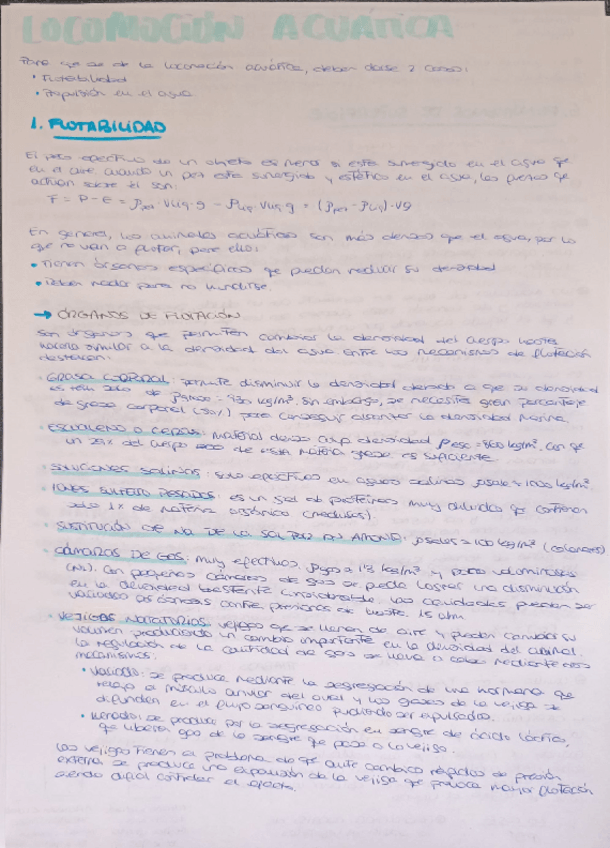 LOCOMOCIÓN ACUÁTICA
Para que se dé la locomoción acuática, deben darse 2 cosas:
• Flotabilidad
• Propulsión en el agua
1. FLOTABILIDAD
El peso específico de un objeto es menor si está sumergido en el agua que
en el aire cuando un pez está sumergido y estático en el agua, las fuerzas que
actúan sobre él son:
F = P - E =
En general, los animales acuáticos son más densos que el agua, por lo
que no van a flotar, para ello:
• Tienen órganos específicos que puedan reducir su densidad
• Deben nadar para no hundirse.
→ ÓRGANOS DE FLOTACIÓN
Son órganos que permiten cambiar la densidad del cuerpo hasta
hacerla similar a la densidad del agua. Entre los mecanismos de flotación
destacan:
• GRASA CORPORAL: permite disminuir la densidad debido a que su densidad
es 930 kg/m³. Sin embargo, se necesita gran porcentaje
de grasa corporal para conseguir alcanzar la densidad marina.
• ESCUALENO O CERAS: material denso cuya densidad con que
un del cuerpo sea de esta materia grasa es suficiente
• SOLUCIONES SALINAS: solo efectivos en aguas salinas
• IONES SULFATO PESADOS: es un gel de proteínas muy diluido que contienen
solo 1% de materia orgánica (medusas).
• SUSTITUCIÓN DE NA DE LA SAL POR AMONIO:
• CÁMARAS DE GAS: muy efectivos, y poco voluminosos
Con pequeñas cámaras de gas se puede lograr una disminución
en la densidad bastante considerable. Las cavidades pueden ser
contra presiones de hasta 15 atm
• VEJIGAS NATATORIAS: vejigas que se llenan de aire y pueden cambiar su
volumen produciendo un cambio importante en la densidad del animal.
La regulación de la cantidad de gas se lleva a cabo mediante dos
mecanismos:
• Vaciado: se produce mediante la segregación de una hormona que
relaja el músculo anular del oval y los gases de la vejiga se
difunden en el flujo sanguíneo pudiendo ser expulsados.
• Llenado: se produce por la segregación en sangre de ácido láctico,
que libera gas de la sangre que pasa a la vejiga.
Las vejigas tienen el problema de que ante cambios rápidos de presión
externa se produce una expansión de la vejiga que provoca mayor flotación
siendo difícil controlar el efecto.